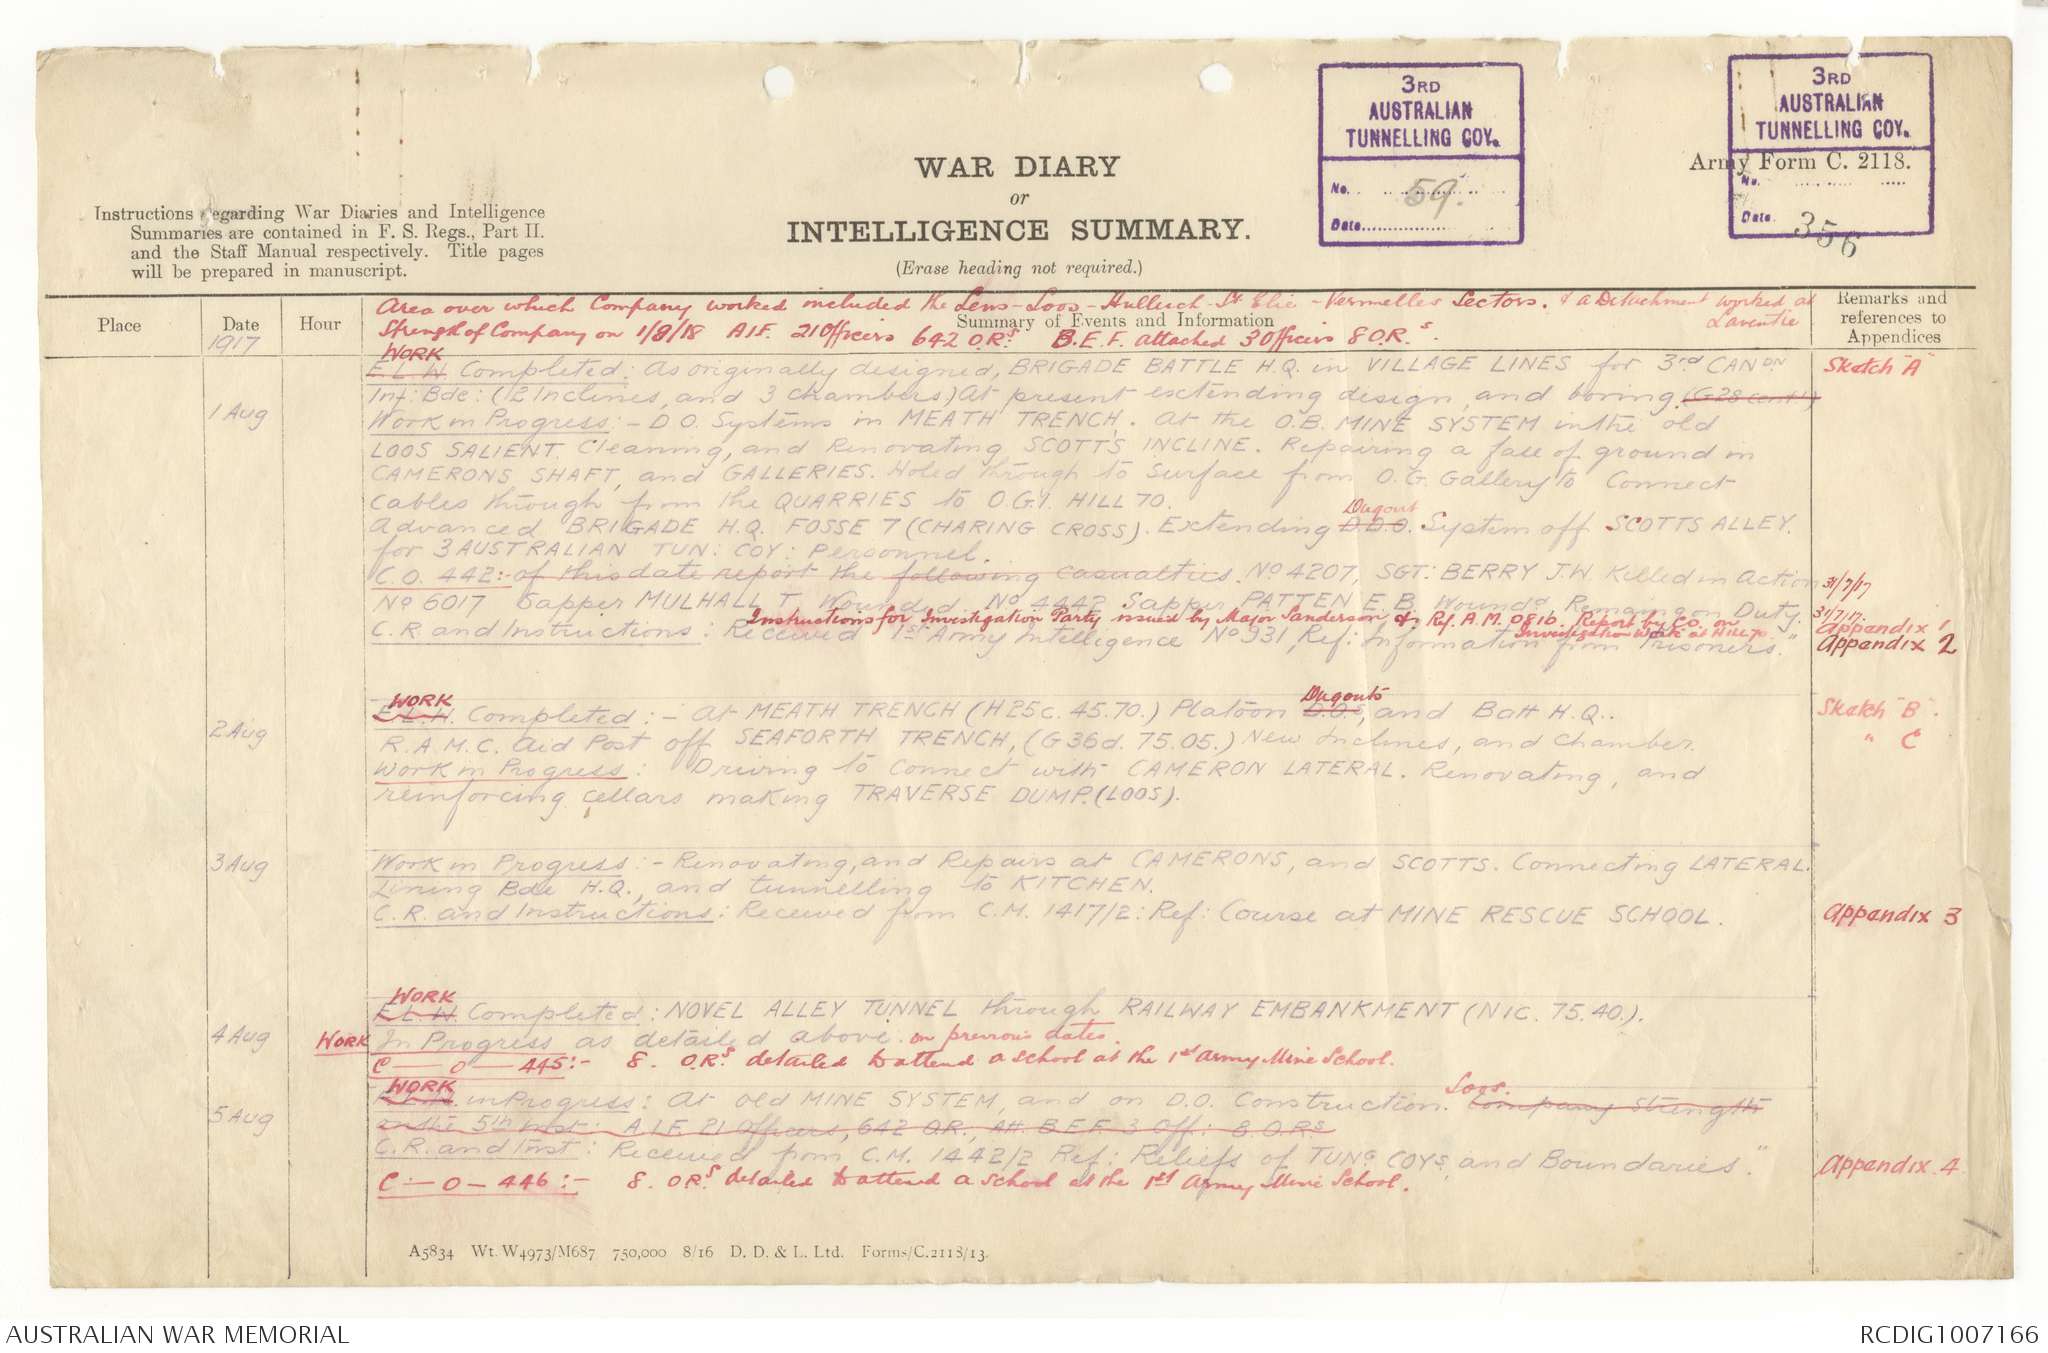 3RD
AUSTRALIAN
TUNNELLING COY.
No. 59.
Date
3RD
AUSTRALIAN
TUNNELLING COY.
No.
Date 356
Army Form C. 2118.
WAR DIARY
or
INTELLIGENCE SUMMARY.
(Erase heading not required.)
Instructions regarding War Diaries and Intelligence
Summaries are contained in F. S. Regs., Part II.
and the Staff Manual respectively. Title pages
will be prepared in manuscript.
Place
Date
1917
Hour
Summary of Events and Information
Remarks and
references to
Appendices
Area over which Company worked included the Lens-Loos-Hulluch-St Elie-Vermelles Sectors. & a Detachment worked at
Laventie
Strength of Company on 1/8/18 A.I.F. 21 Officers 642 O.Rs. B.E.F. attached 3 Officers 8 O.R.s.
WORK
1 Aug
E L W. Completed: As originally designed, BRIGADE BATTLE H.Q. in VILLAGE LINES for 3rd CANDN Sketch "A"
Inf: Bde: (12 Inclines, and 3 chambers) At present extending design, and boring. (G28 cent)
Work in Progress:- D O. Systems in MEATH TRENCH. At the O.B. MINE SYSTEM in the old
LOOS SALIENT. Cleaning, and Renovating SCOTTS INCLINE. Repairing a fall of ground in
CAMERONS SHAFT, and GALLERIES. Holed through to Surface from O.G. Gallery to Connect
Cables through from the QUARRIES to O.G.1. HILL 70.
Dugout
Advanced BRIGADE H.Q. FOSSE 7 (CHARING CROSS). Extending D.D.O. System off SCOTTS ALLEY.
for 3 AUSTRALIAN TUN: COY: Personnel.
C.O. 442:- of this date report the following casualties. No 4207, SGT: BERRY J.W. Killed in Action 31/7/17
No 6017 Sapper MULHALL T. Wounded No 4442 Sapper PATTEN E B. Wounded Remaining on Duty. 31/7/17.
Instructions for Investigation Party issued by Major Sanderson in Ref. A.M. 0816. Report by C.O. on Appendix 1
Investigation Work at Hill 70.
C.R. and Instructions: Received 1st Army Intelligence No 931, Ref: Information from Prisoners." Appendix 2
WORK
Dugouts
2 Aug
E.L.W. Completed:- At MEATH TRENCH (H25c. 45.70.) Platoon D.O.s, and Batt H.Q.. Sketch "B".
R.A.M.C. Aid Post off SEAFORTH TRENCH, (G36d. 75.05.) New Inclines, and chamber. " C
Work in Progress: Driving to Connect with CAMERON LATERAL. Renovating, and
reinforcing cellars making TRAVERSE DUMP. (LOOS).
3 Aug
Work in Progress:- Renovating, and Repairs at CAMERONS, and SCOTTS. Connecting LATERAL.
Lining Bde H.Q., and tunnelling to KITCHEN.
C.R. and Instructions: Received from C.M. 1417/2: Ref: Course at MINE RESCUE SCHOOL. Appendix 3
WORK
E L W. Completed: NOVEL ALLEY TUNNEL through RAILWAY EMBANKMENT (N1C. 75.40.).
4 Aug
WORK In Progress as detailed above. on previous dates.
C — O — 445:- 8. O.Rs detailed to attend a school at the 1st Army Mine School.
WORK
Loos.
5 Aug
E.L.W. in Progress: At old MINE SYSTEM, and on D.O. Construction. Company Strength
on the 5th Inst: A.I.F. 21 Officers, 642 O.R., Att. B.E.F. 3 Off: 8 O.Rs
C.R. and Inst: Received from C.M. 1442/2 Ref: Reliefs of TUNG COYS, and Boundaries." Appendix 4
C — O — 446:- 8. ORs detailed to attend a School at the 1st Army Mine School.
A5834 Wt. W4973/M687 750,000 8/16 D. D. & L. Ltd. Forms/C.2118/13.
AUSTRALIAN WAR MEMORIAL
RCDIG1007166